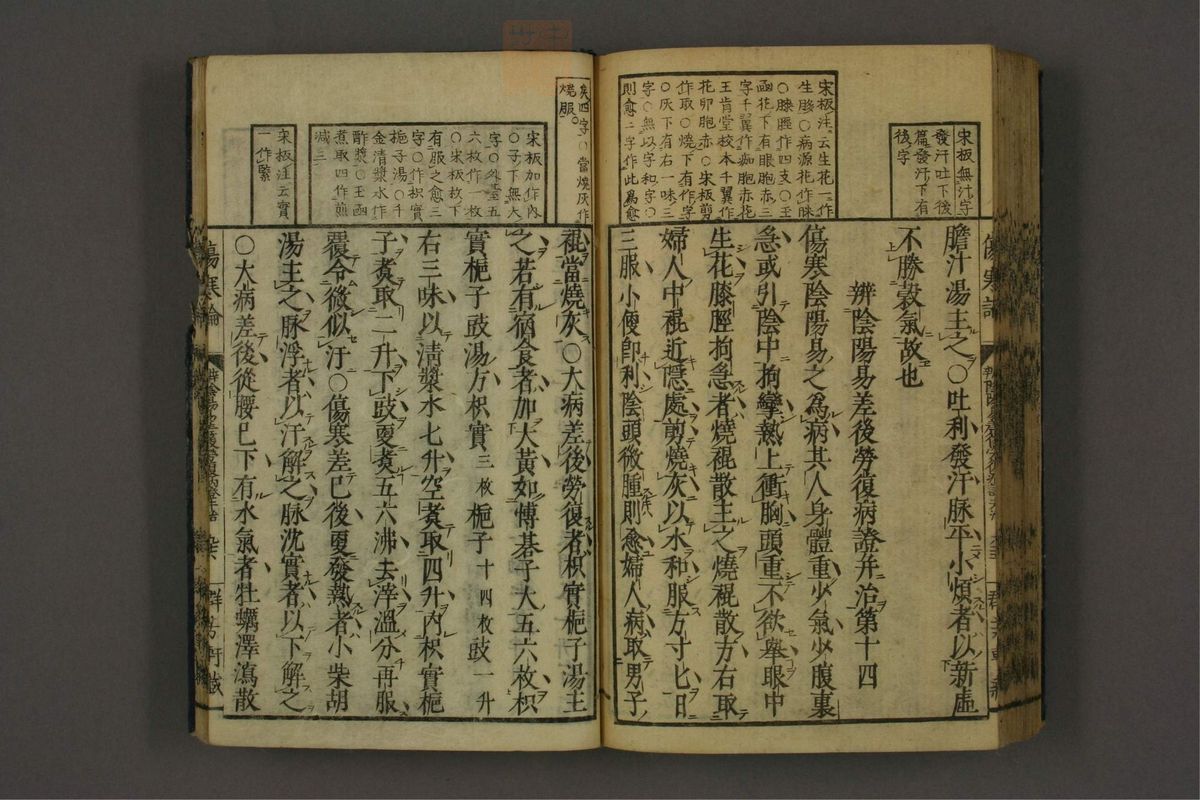 宋板無汁字
發汗吐下後
篇發汗下有
後字
宋板注云生花一作
生眵○病源花作眯
○膝脛作四支○王
函花下有眼胞赤三
字千翼作痂胞赤花
王肯堂校本千翼作
花卯胞赤○宋板剪
作取○燒下有作字
○灰下有右一味三
字○無以字和字○
則愈二字作此為愈
膽汁湯主之○吐利發汗脉平小煩者以新虛
不勝穀氣故也
辨陰陽易差後勞復病證并治第十四
傷寒陰陽易之為病其人身體重少氣少腹裏
急或引陰中拘攣熱上衝胸頭重不欲舉眼中
生花膝脛拘急者燒裩散主之燒裩散方右取
婦人中裩近隱處剪燒灰以水和服方寸匕日
三服小便卽利陰頭微腫則愈婦人病取男子
矣四字○當燒灰作
燒服。
宋板加作內
○子下無大
字○外臺五
六枚作一枚
○宋板枚下
有服之愈三
字○作枳實
梔子湯○千
金清漿水作
酢漿○王函
煮取四作煎
減三
宋板注云實
一作緊
裩當燒灰○大病差後勞復者枳實梔子湯主
之若有宿食者加大黃如博碁子大五六枚枳
實梔子豉湯方枳實三枚梔子十四枚豉一升
右三味以淸漿水七升空煮取四升內枳實梔
子煮取二升下豉更煮五六沸去滓溫分再服
覆令微似汗○傷寒差已後更發熱者小柴胡
湯主之脉浮者以汗解之脉沈實者以下解之
○大病差後從腰已下有水氣者牡蠣澤瀉散
傷寒論